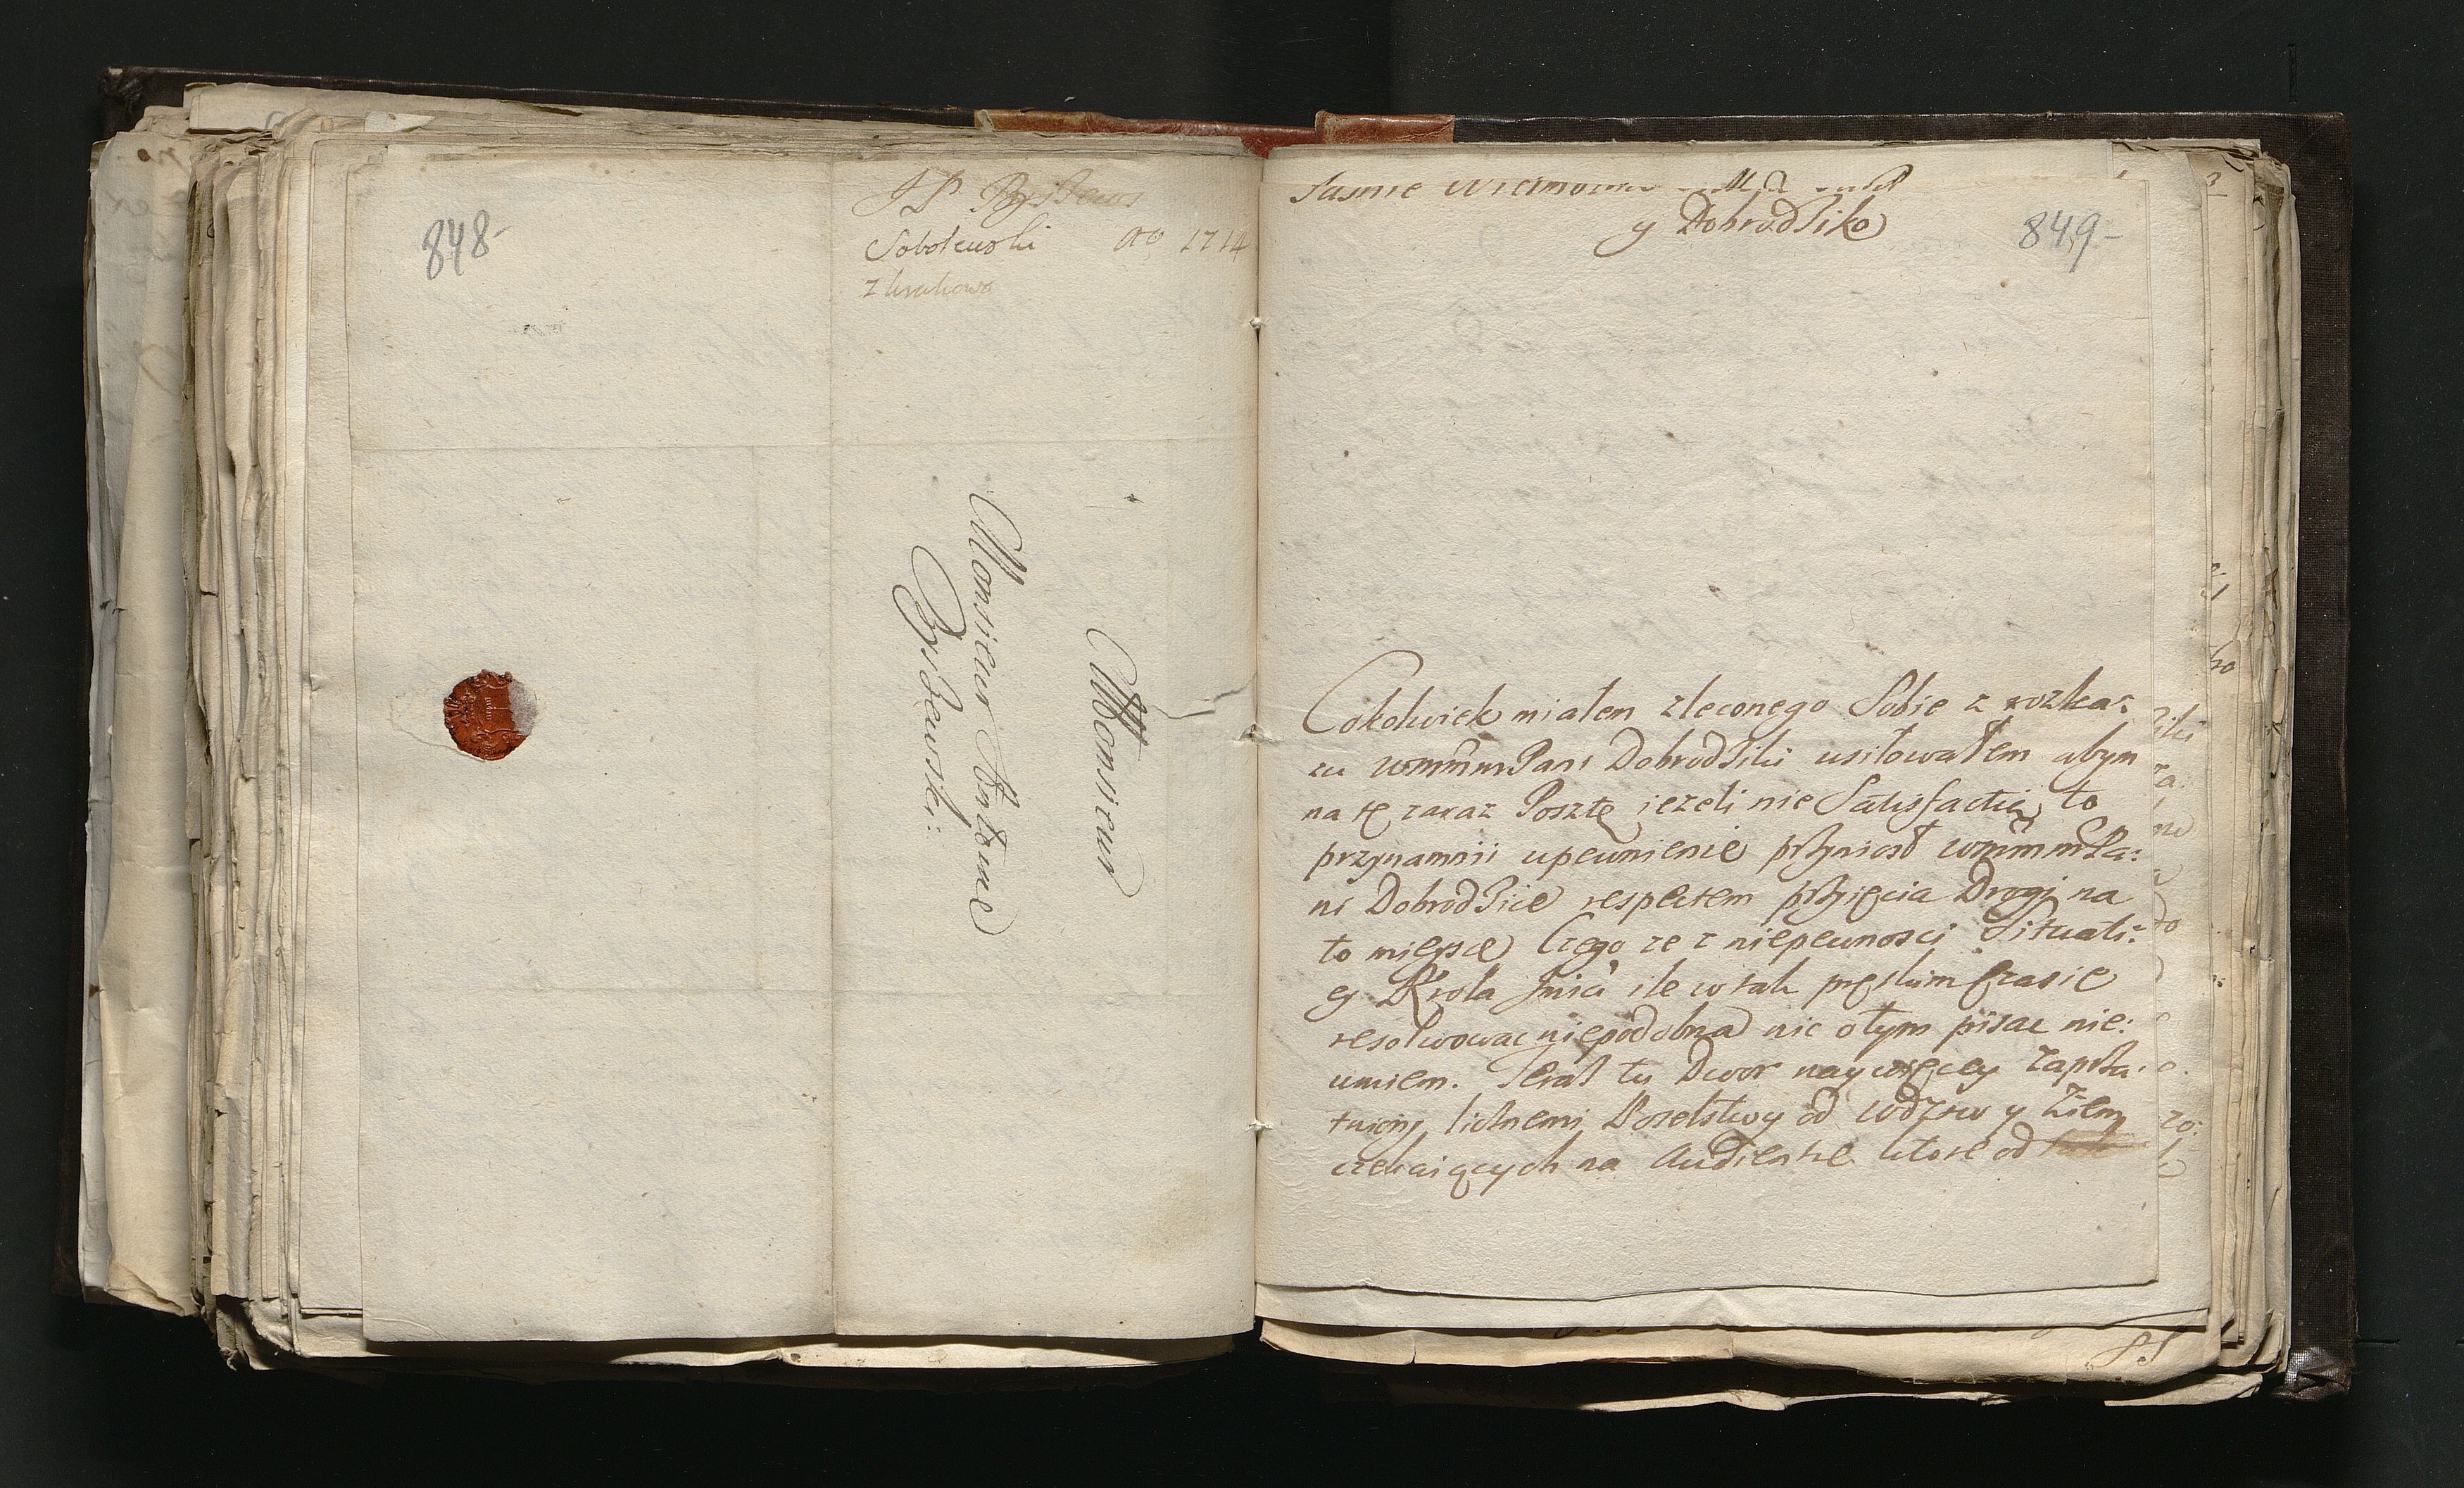 848-
J P
Sobolewski Ao 1714
z krakowa
Monsieur
Monsieur Antoine
849-
Jasnie
y Dobrodziko
Cokolwiek miałem zleconego Sobie z rozka:
zu wmmm Pani Dobrodziki usiłowałem abym
na tę zaraz Posztę ieżeli nie Satisfactią to
przynamnii upewnienie przyniosł wmmm Pa:
ni Dobrodzice respectem przyięcia Drogi na
to mieysce Czego ze z niepewnosci Situati:
ey Krola Jmści ile w tak pręthim Czasie
resolwowac niepodobna nic o tym pisac nie:
umiem. Teraz tu Dwor naywięcey zaprzą:
tniony licznemi Poselstwy od Wdztw y Ziem
czekaiących na Audientie ktore od